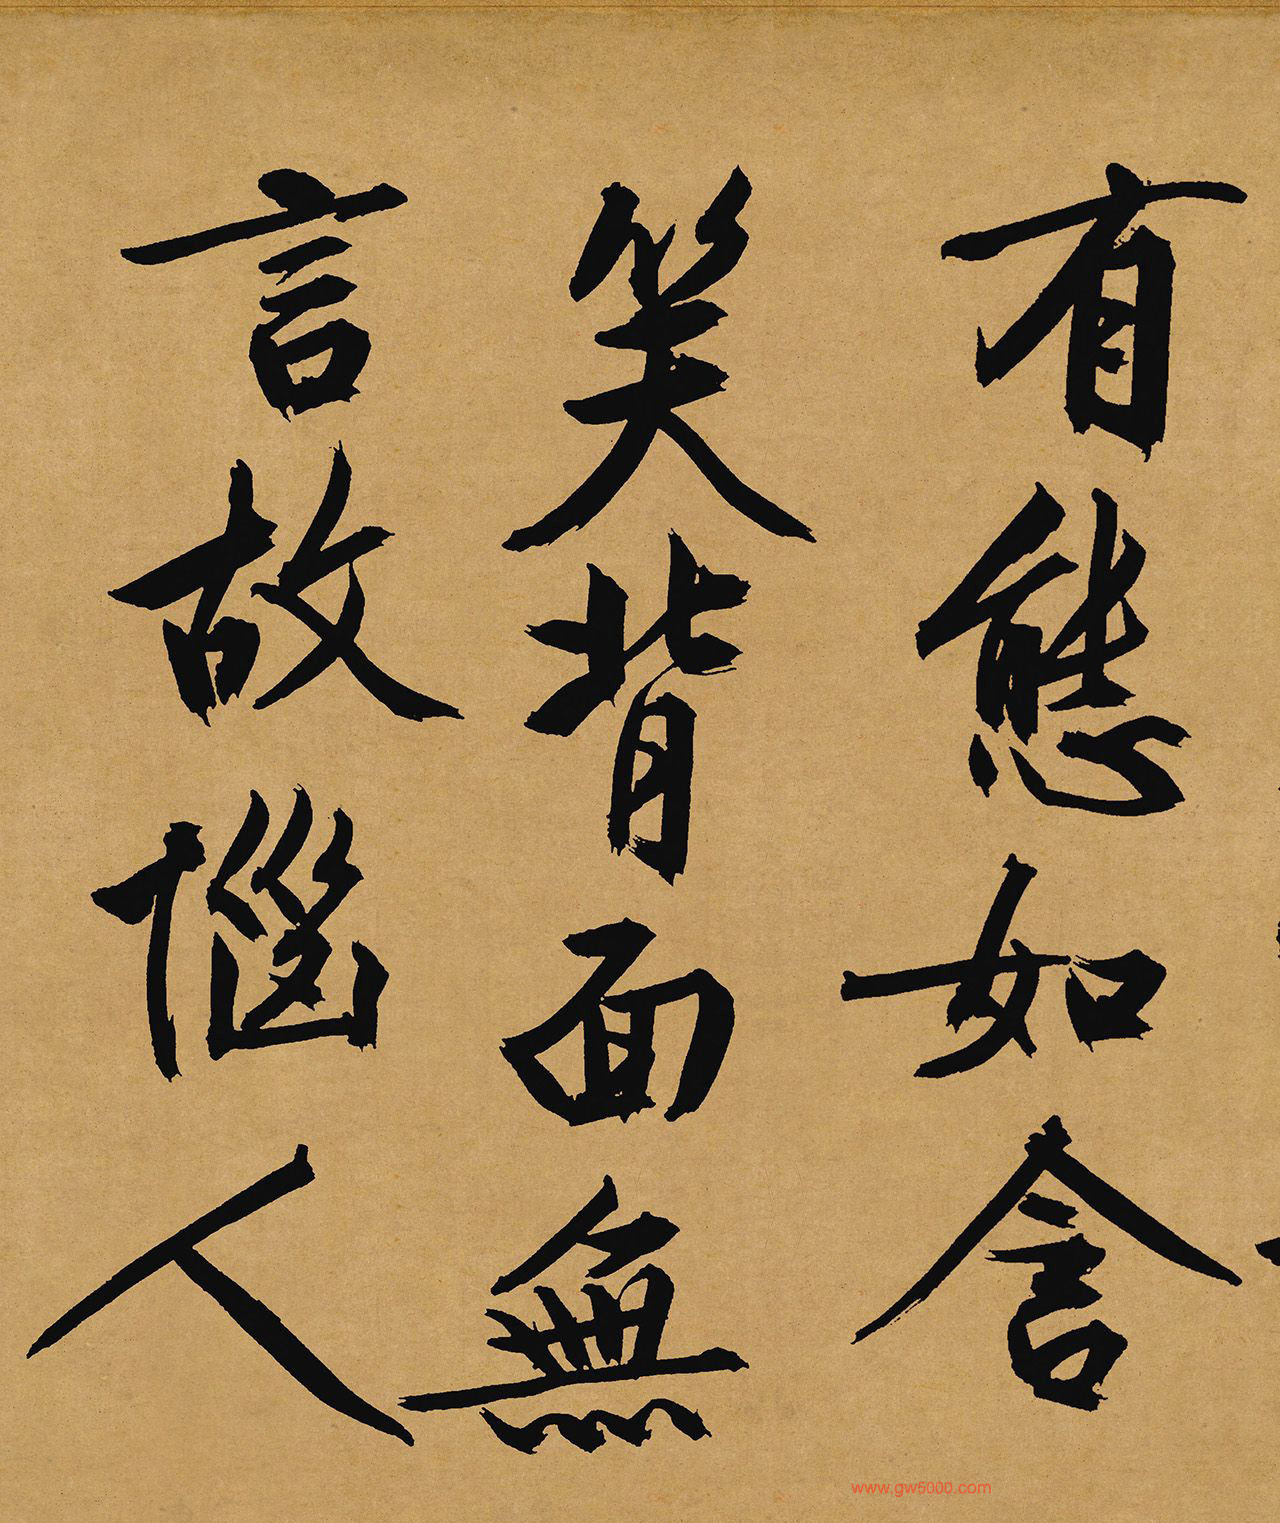 有態如含
笑背面無
言故惱人
www.gw5000.com